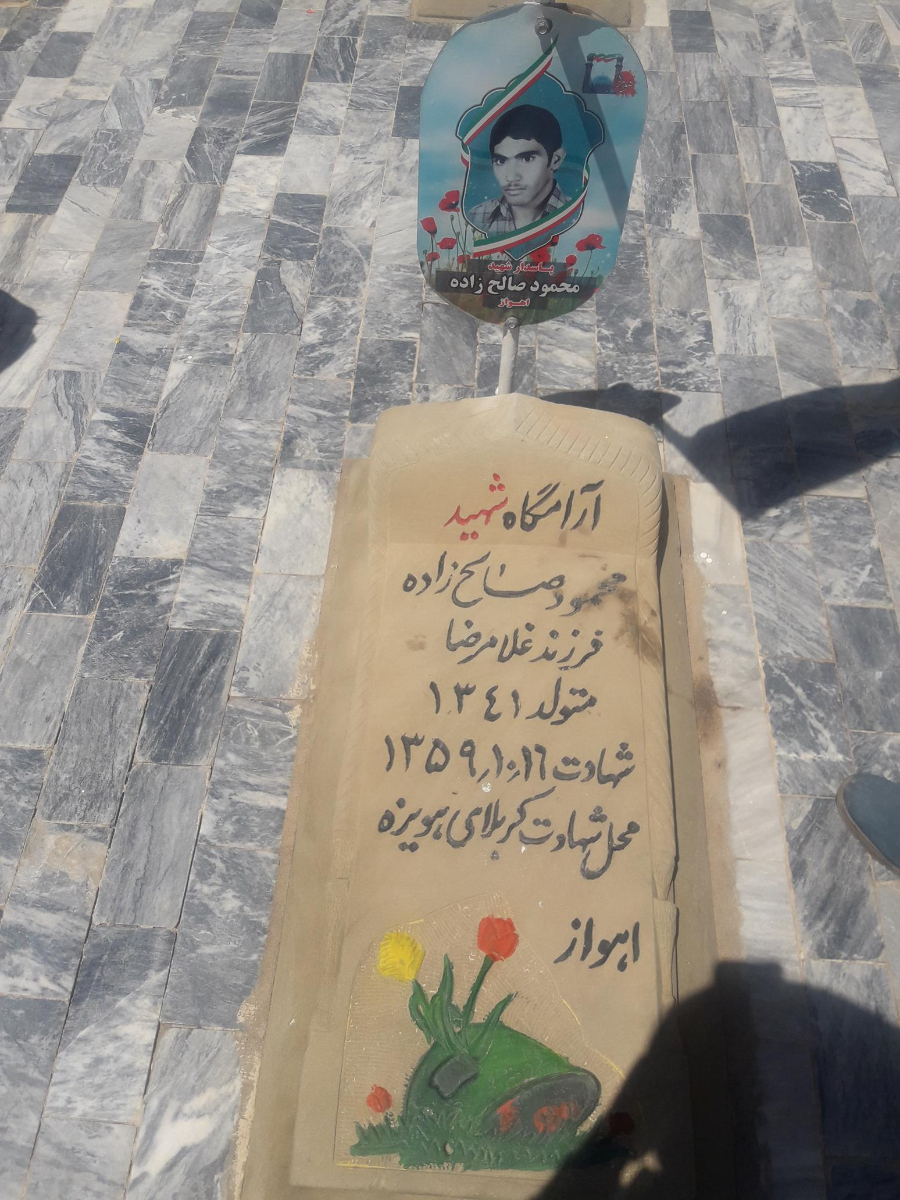 پاسدار شهید
محمود صالح زاده
اهواز
آرامگاه شهید
محمود صالح زاده
فرزند غلامرضا
متولد ١٣٤١
شهادت ١٣۵٩٫١٠٫١٦
محل شهادت کربلای هویزه
اهواز